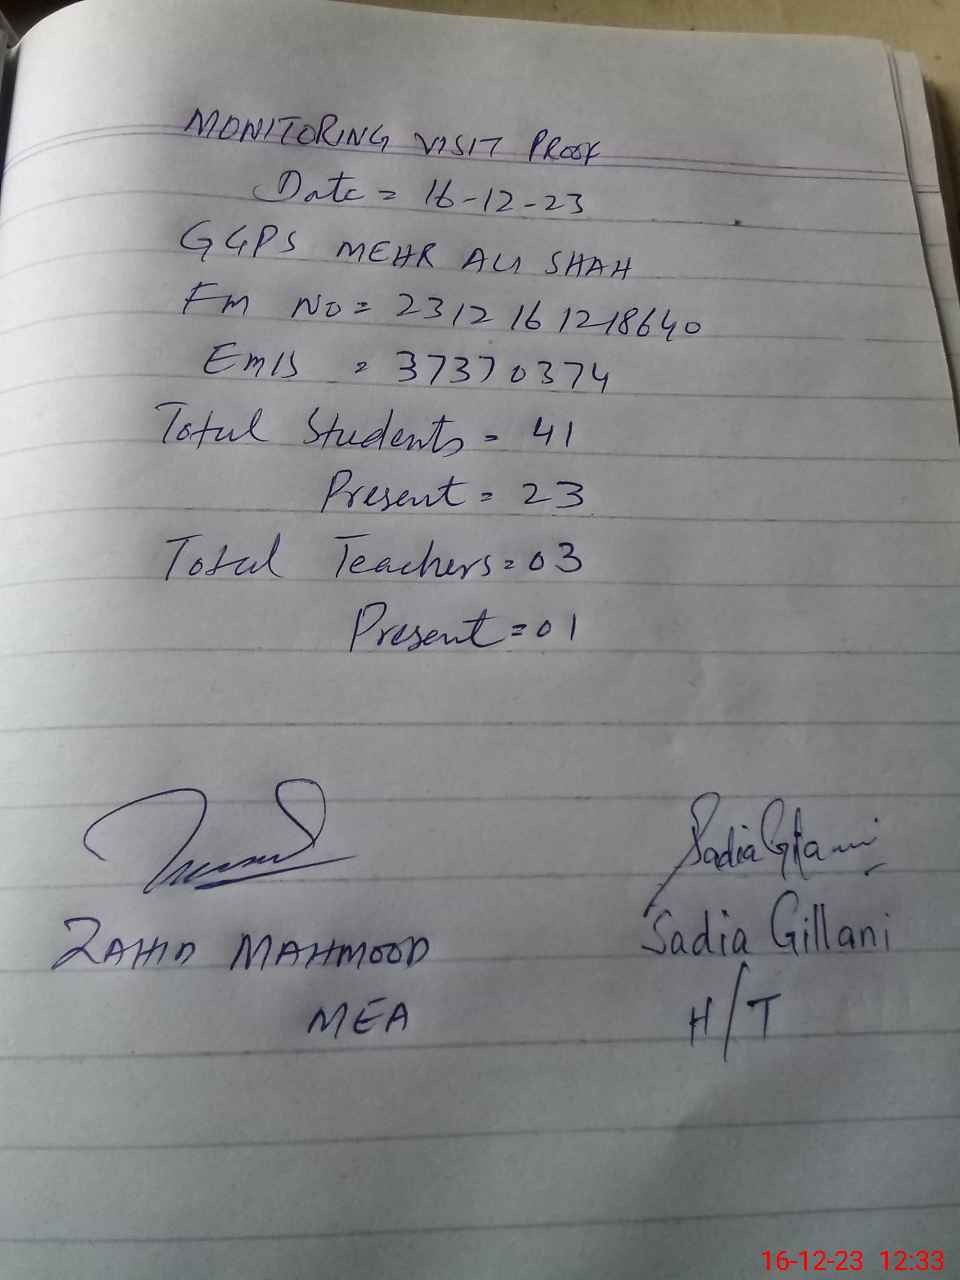 MONITORING VISIT PROOF
Date = 16-12-23
GGPS MEHR ALI SHAH
FM NO = 231216 1218640
EMIS = 37370374
Total Students = 41
Present = 23
Total Teachers = 03
Present = 01
Sadia Gillani
ZAHID MAHMOOD
Sadia Gillani
MEA
H/T
16-12-23 12:33